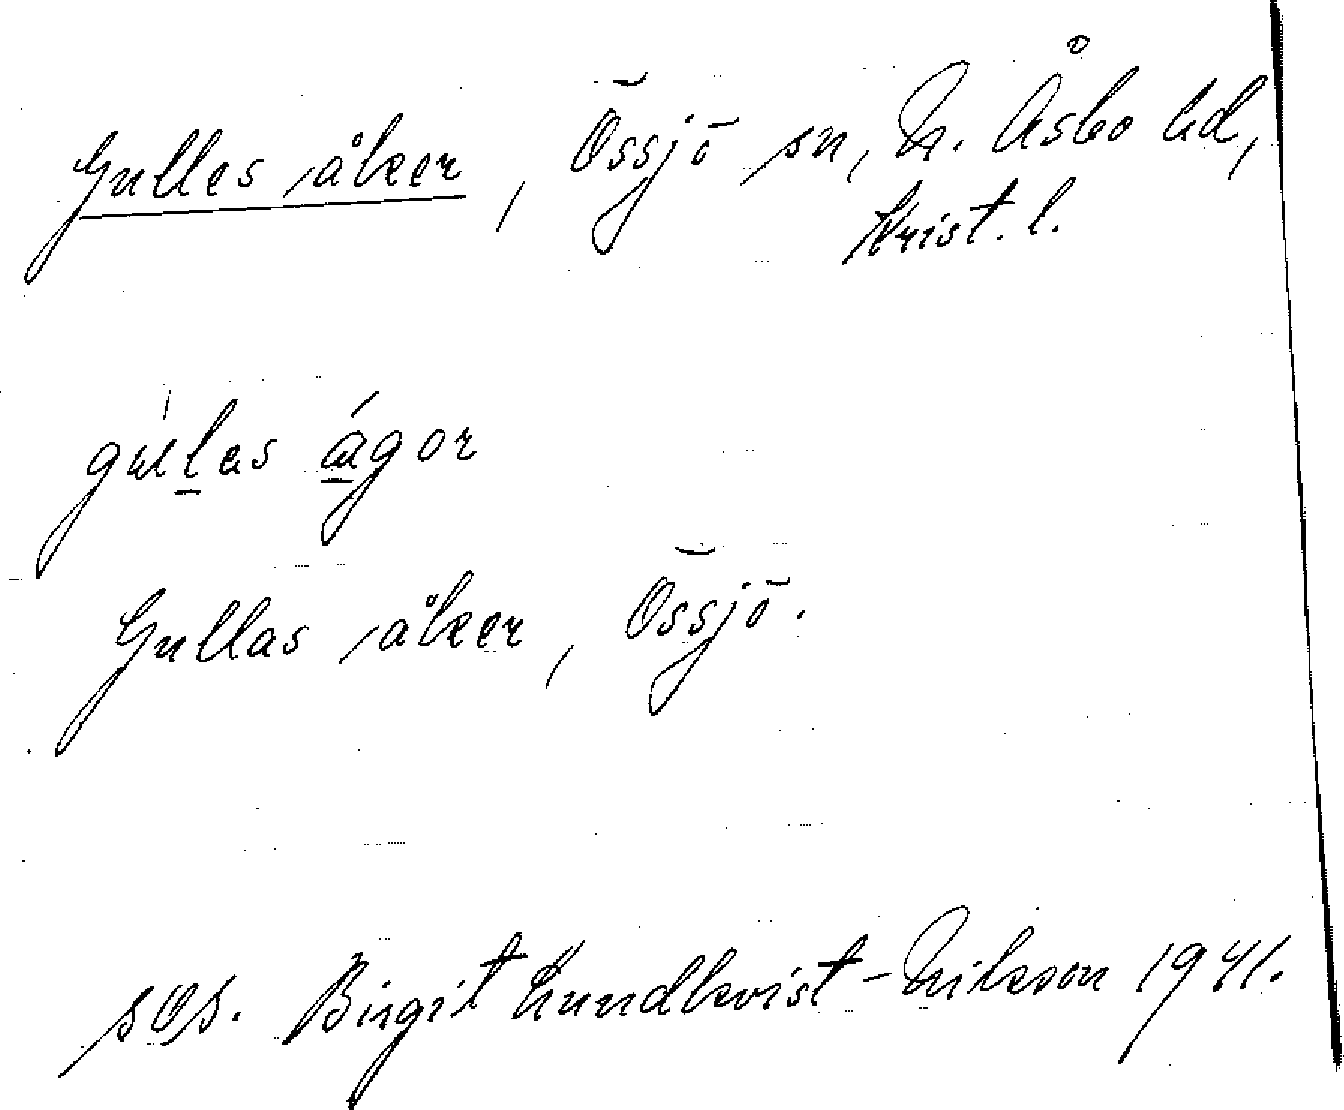 Gulles åker, Össjö sn, N. Åsbo hd,
Krist. l.
gúllas ágor
Gullas åker, Össjö.
Birgit Lundkvist-Nilsson 1941.